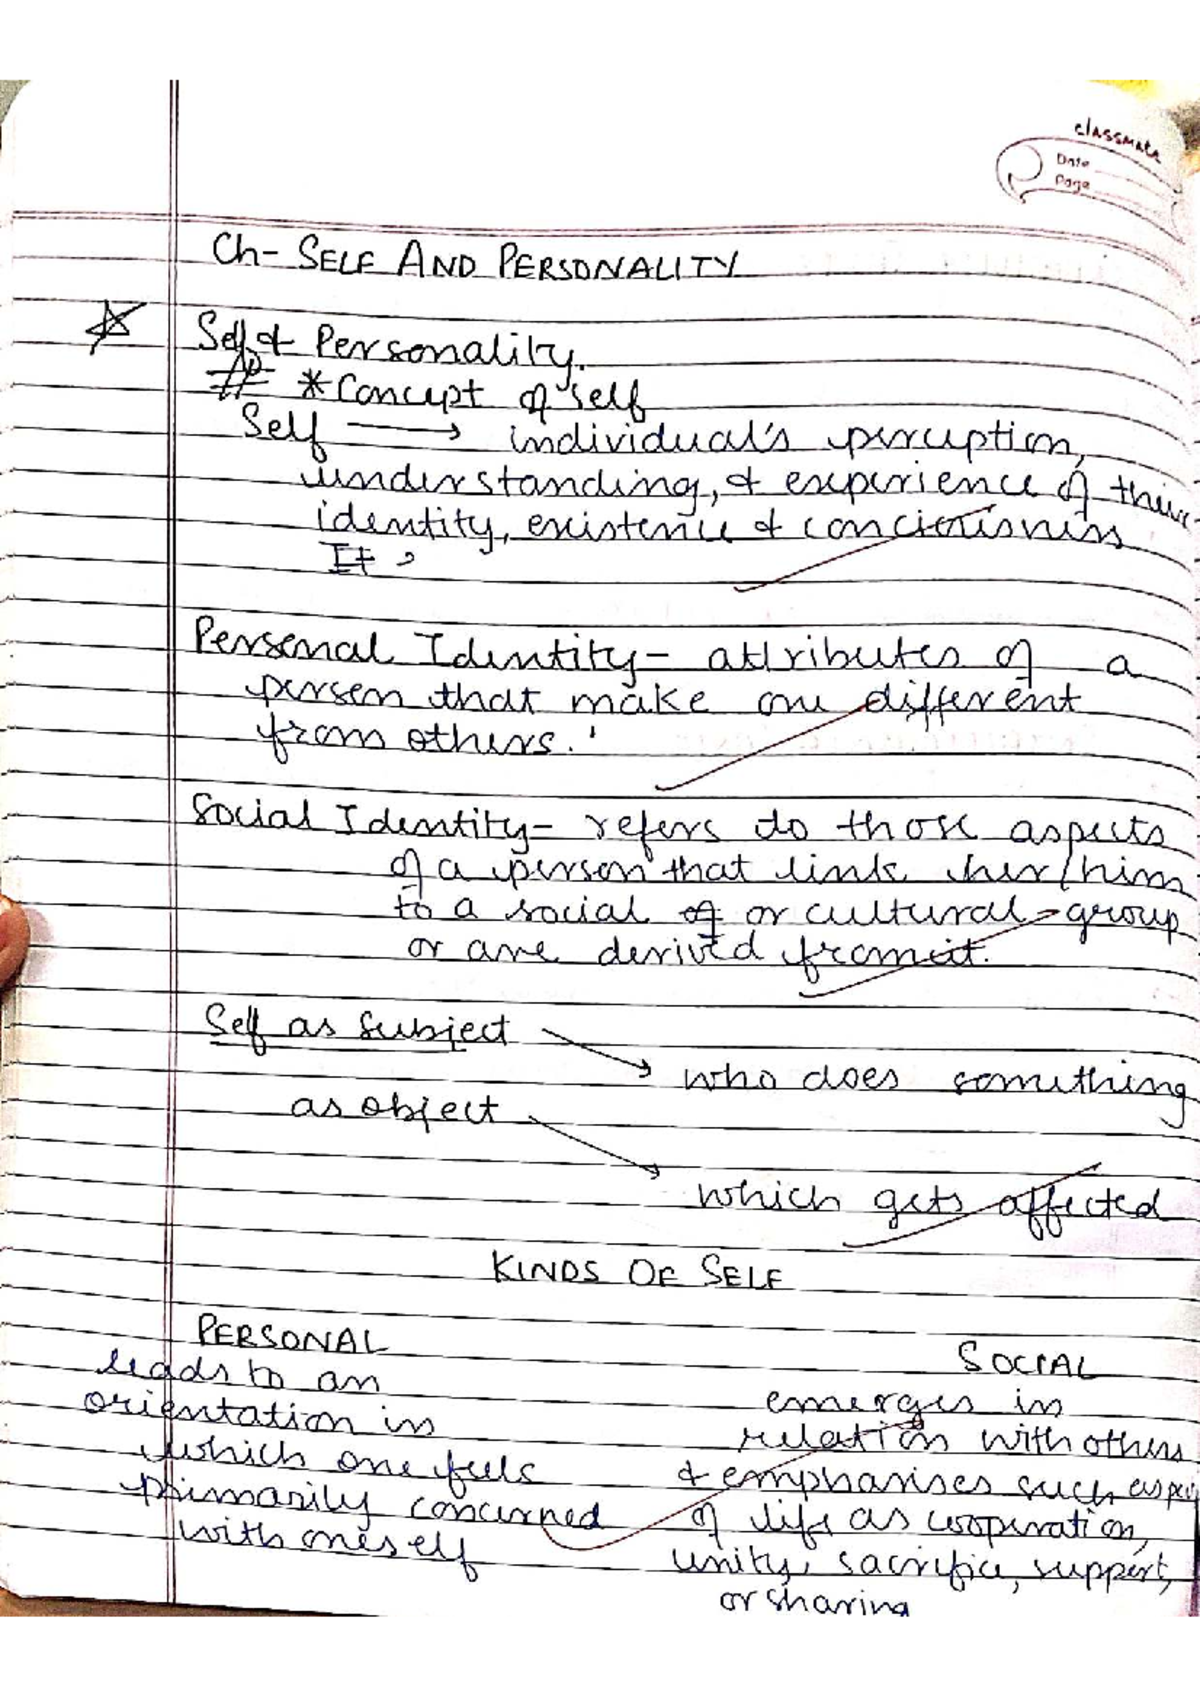 classmate
Date
Page
Ch- SELF AND PERSONALITY
Self & Personality.
* Concept of self
Self → individual's perception,
understanding, & experience of their
identity, existence & conciousness
It
Personal Identity - attributes of a
person that make one different
from others.
Social Identity - refers to those aspects
of a person that link her/him
to a social of or cultural group
or are derived from it.
Self as subject
who does something
as object
which gets affected
KINDS OF SELF
PERSONAL
leads to an
orientation in
which one feels
primarily concerned
with oneself
SOCIAL
emerges in
relation with others
& emphasises such
of life as cooperation,
unity, sacrifice, support,
or sharing